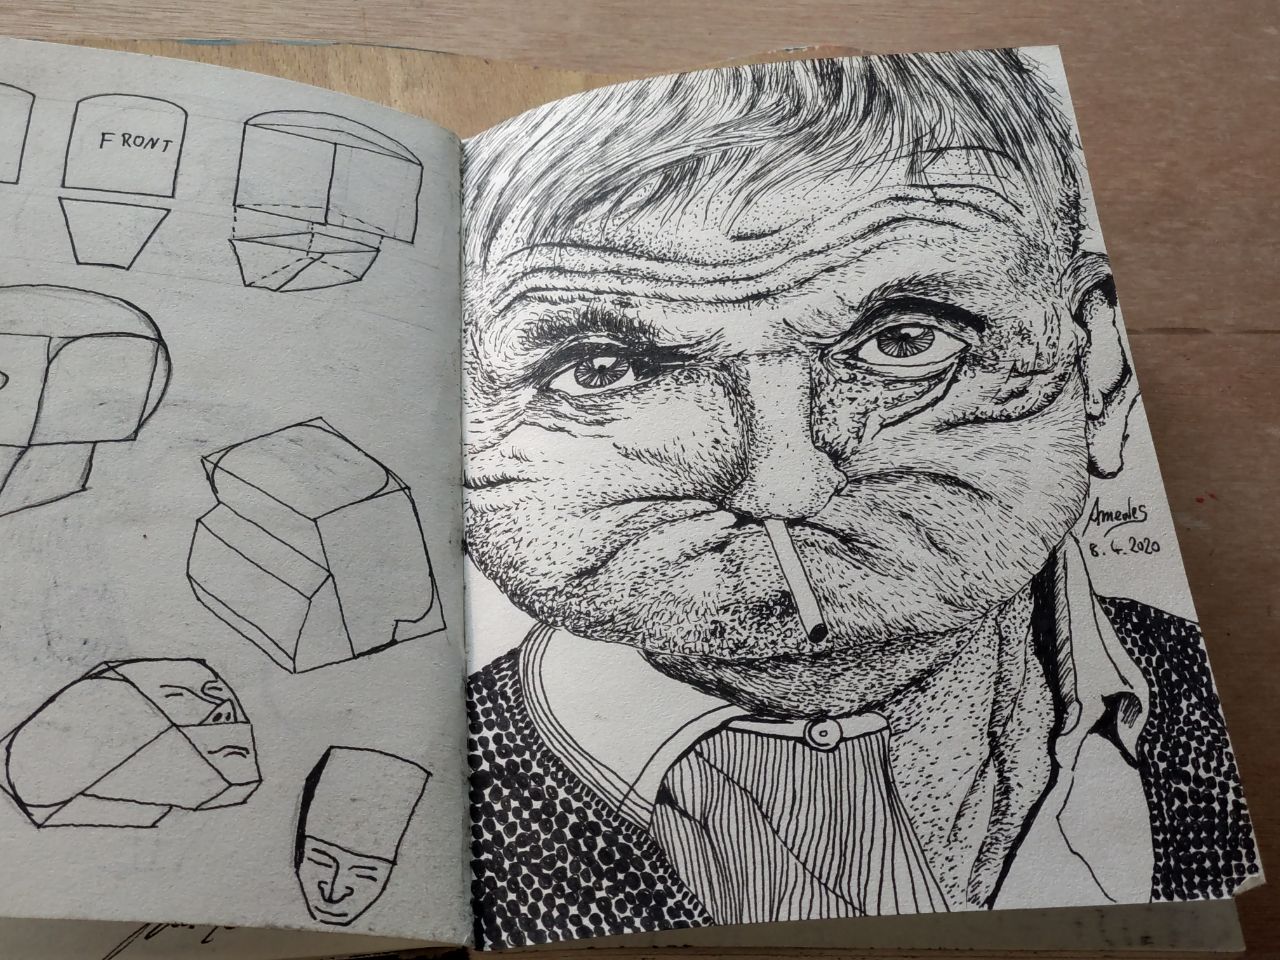 FRONT
Amedes
8.4.2020